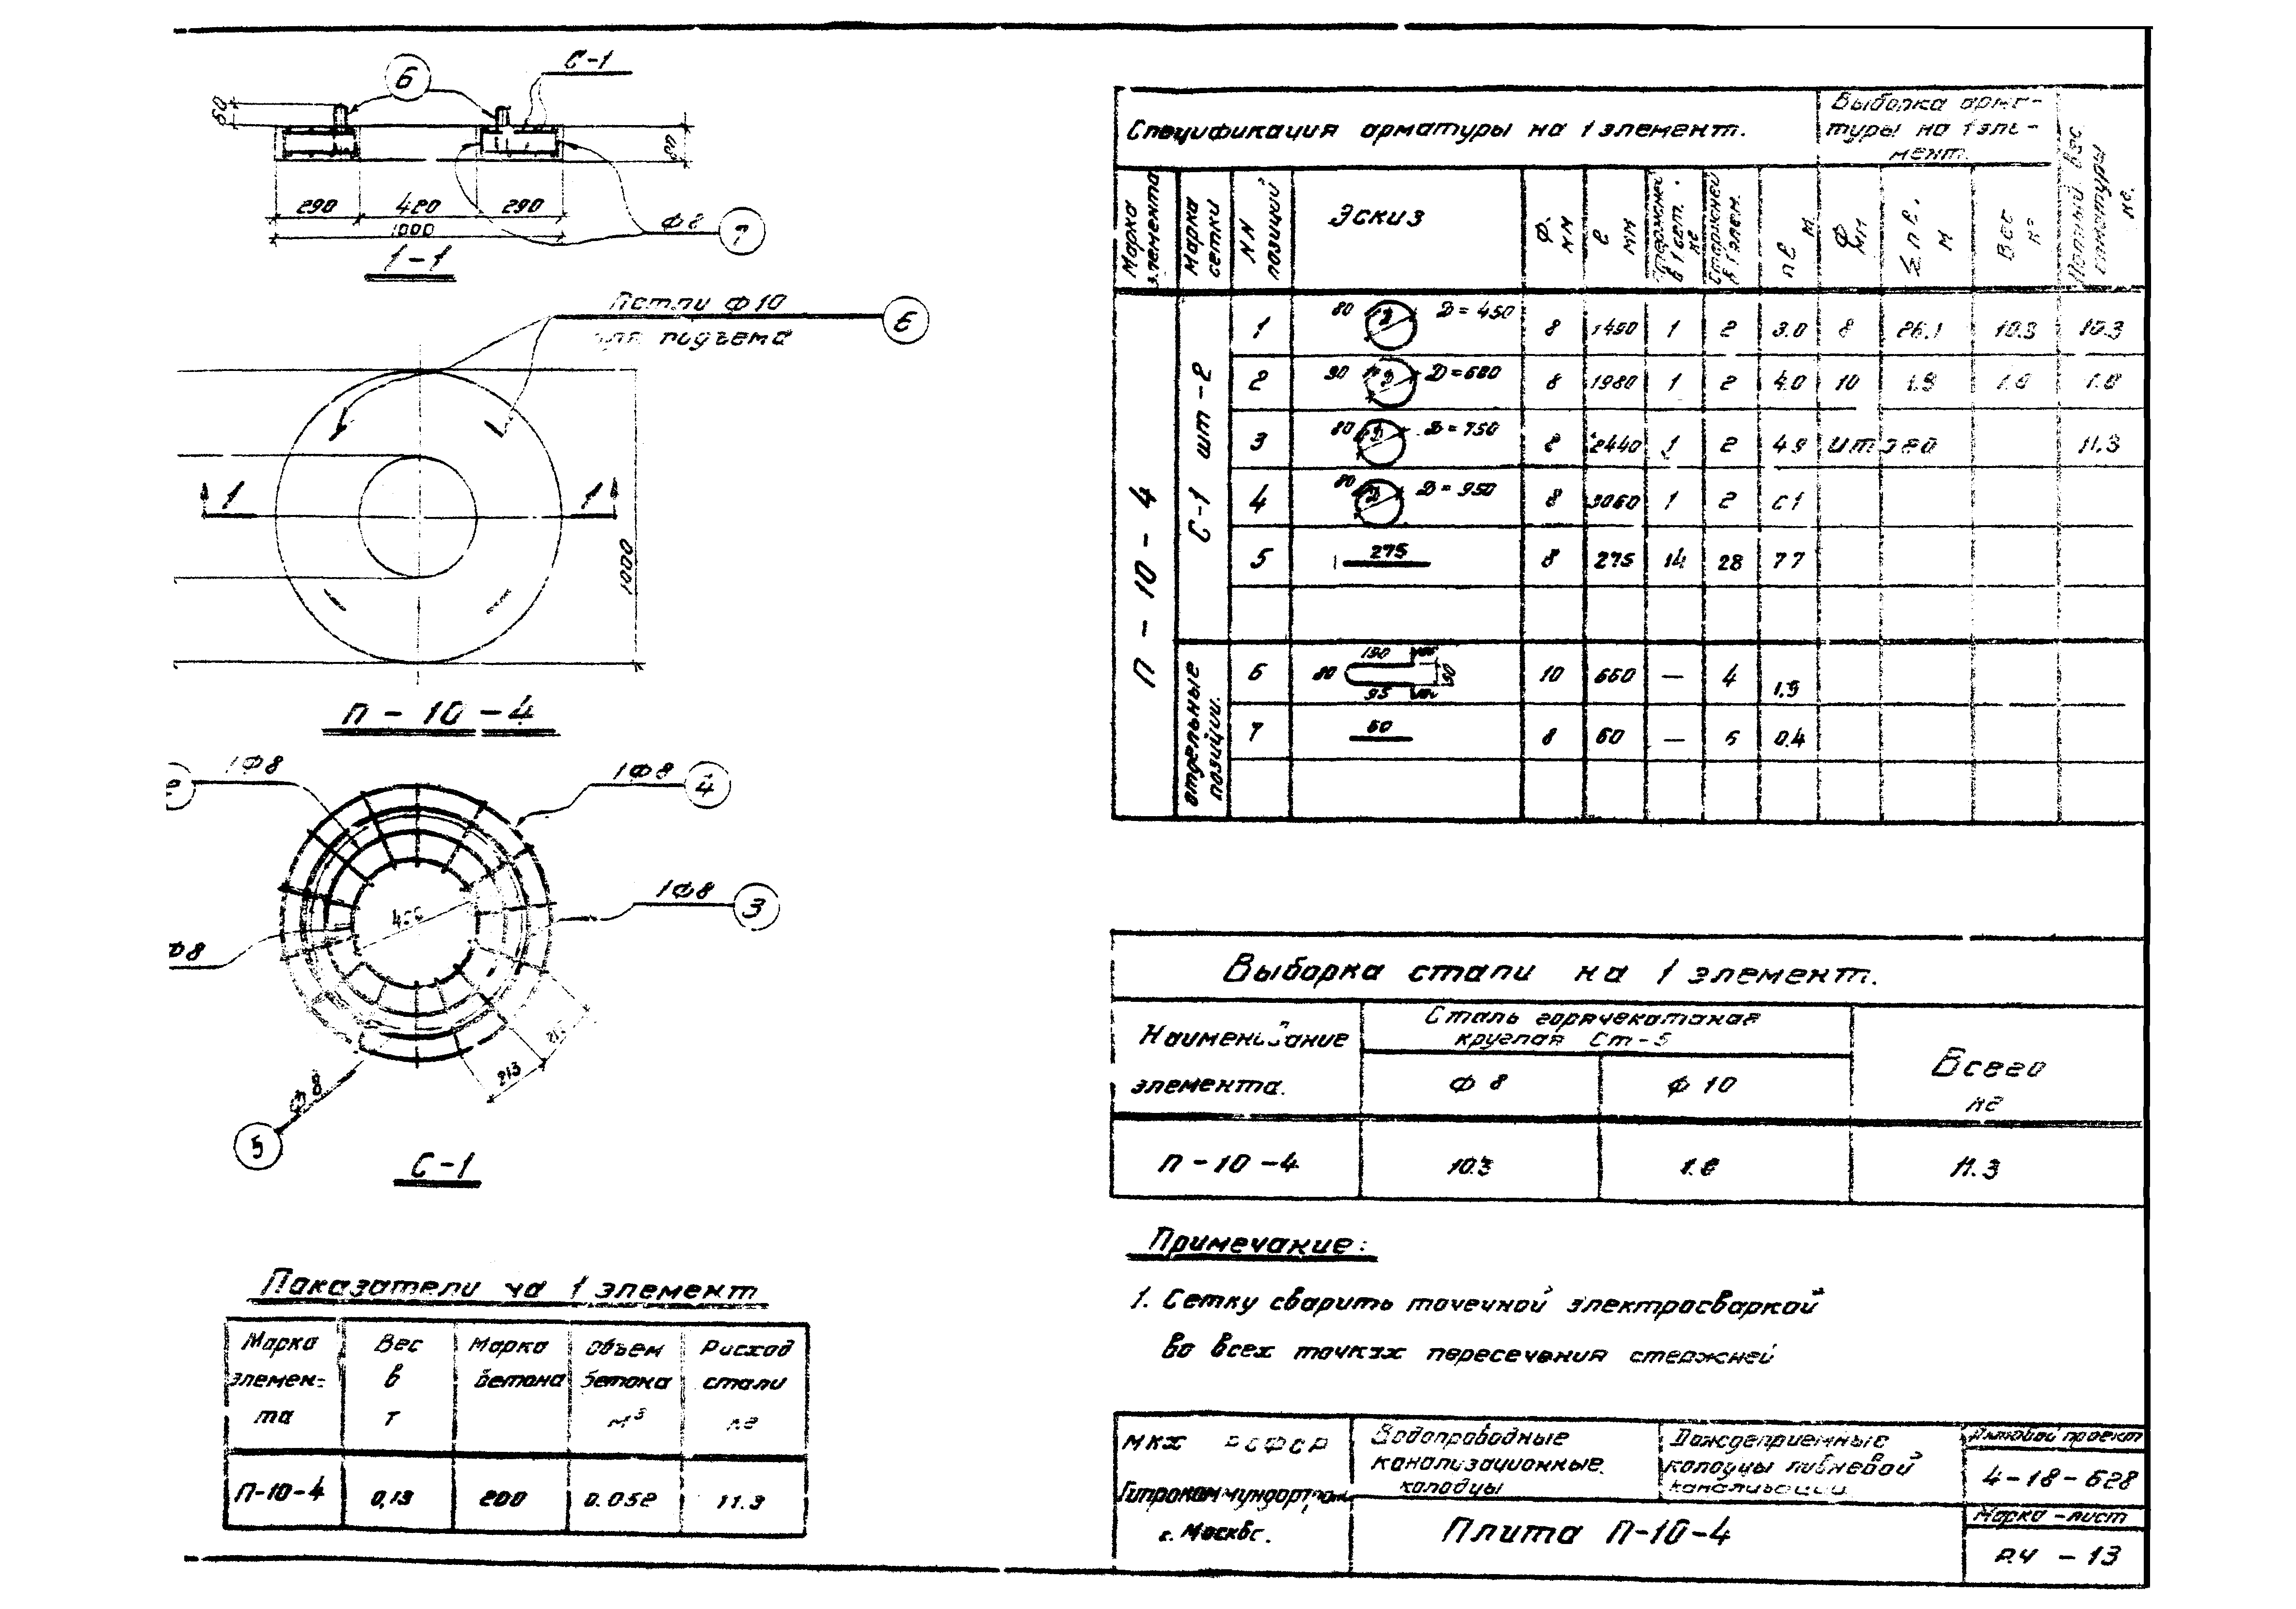 С-1
6
50
80
290 420 290
1000
Ф8
7
1-1
Петли Ф10
для подъема
6
1 1
1000
П-10-4
1Ф8
1Ф8
4
1Ф8
3
Ф8
213
Ф8
5
С-1
Показатели на 1 элемент
Марка элемен-та | Вес в т | Марка бетона | Объем бетона м³ | Расход стали кг
П-10-4 | 0,13 | 200 | 0.052 | 11.3
Спецификация арматуры на 1 элемент.
Выборка арма-
туры на 1 эле-
мент.
Полный вес арматуры кг.
Марка элемента | Марка сетки | NN позиций | Эскиз | Ф мм | ℓ мм | Стержней в 1 сет. | Стержней в 1 элем. | nℓ м | Ф мм | Σnℓ. м | Вес кг
П-10-4
С-1 шт-2
1 | 80 Д Д=450 | 8 | 1490 | 1 | 2 | 3.0 | 8 | 26.1 | 10.3 | 10.3
2 | 90 Д Д=600 | 8 | 1980 | 1 | 2 | 4.0 | 10
3 | 80 Д Д=750 | 8 | 2440 | 1 | 2 | 4.9 | Итого | 11.3
4 | 80 Д Д=950 | 8 | 3060 | 1 | 2
5 | 275 | 8 | 275 | 14 | 28 | 7.7
отдельные позиции.
6 | 80 190 95 | 10 | 660 | — | 4
7 | 60 | 8 | 60 | — | 6 | 0.4
Выборка стали на 1 элемент.
Наименование
элемента.
Сталь горячекатаная
круглая Ст-5
Ф 8 | Ф 10
Всего
кг
П-10-4 | 10.3 | 11.3
Примечание:
1. Сетку сварить точечной электросваркой
во всех точках пересечения стержней
МКХ РСФСР
Гипрокоммундортранс
г. Москва.
Водопроводные
канализационные
колодцы
Дождеприемные
колодцы ливневой
канализации
Типовой проект
4-18-628
Марка-лист
Плита П-10-4
Р.Ч - 13